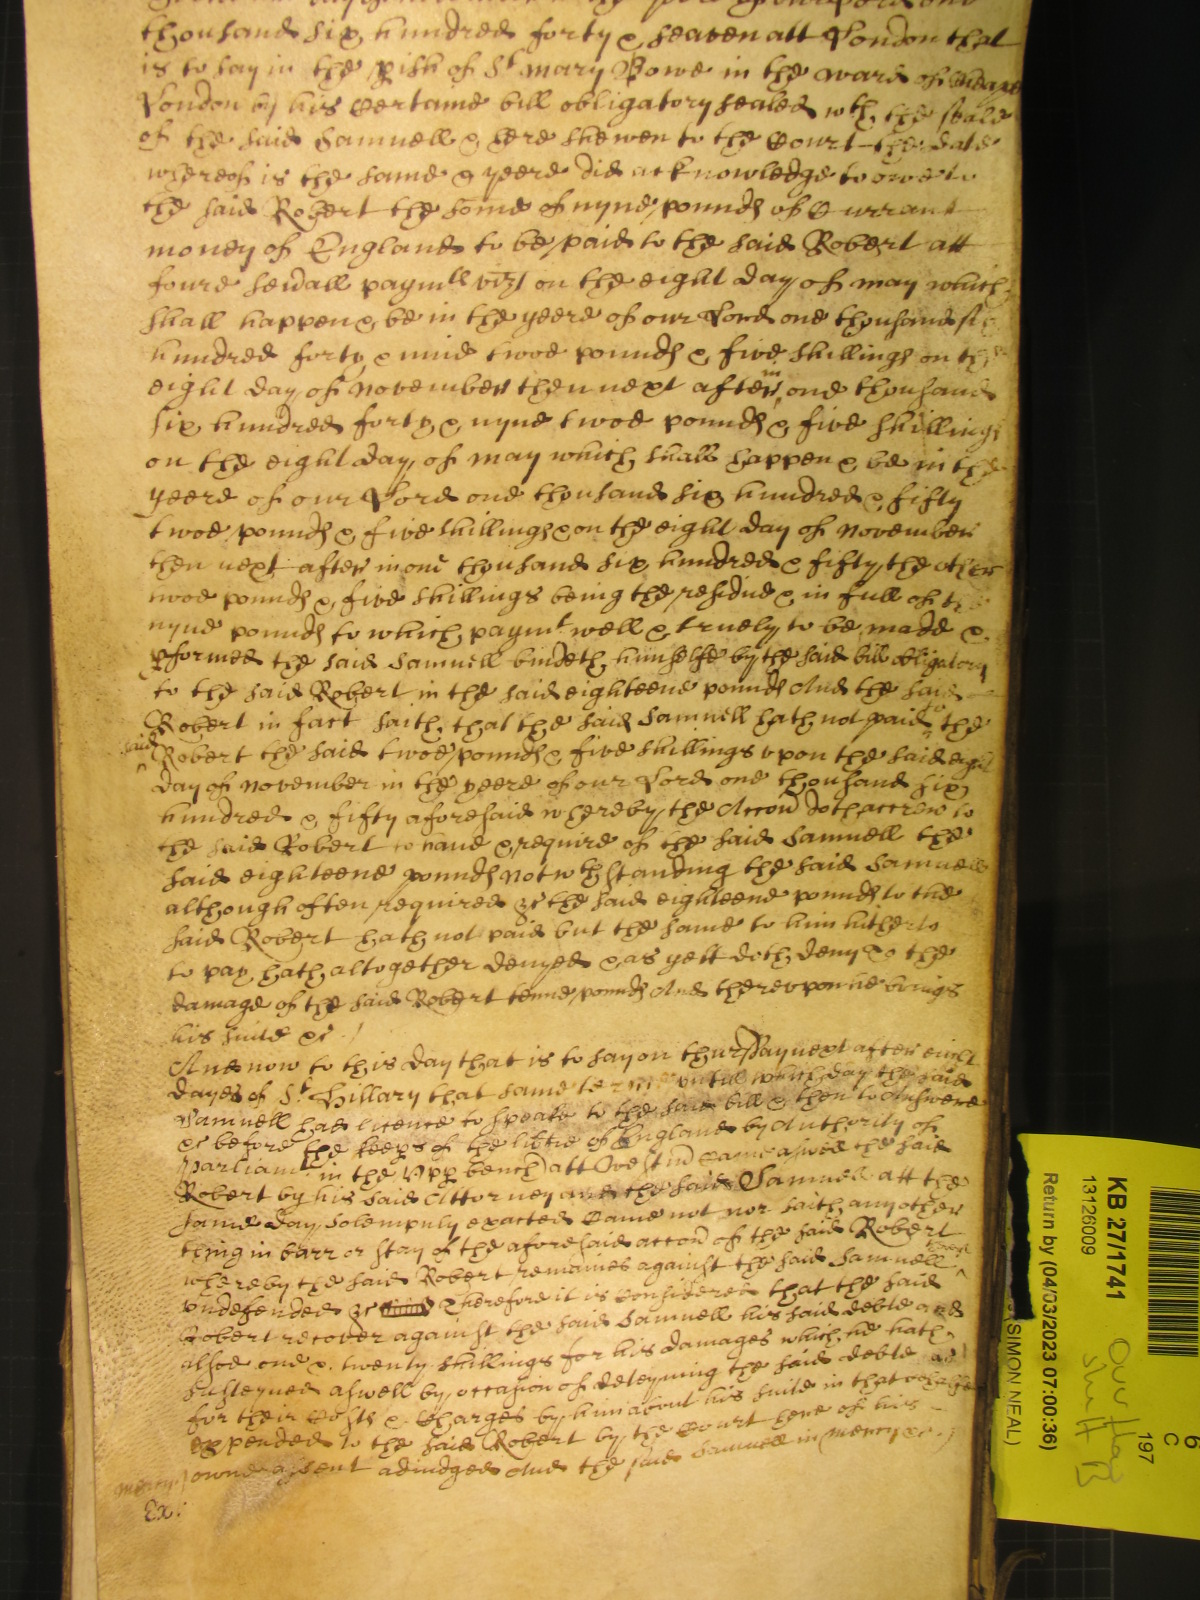 thousand six hundred forty & seaven att London that
is to say in the pish of St Mary Bowe in the ward of Cheape
London by his certaine bill obligatory sealed wth the seale
of the said Samuell & here shewen to the Court the date
whereof is the same & yeere did acknowledge to owe to
the said Robert the some of nyne pounds of Currant
money of England to be paid to the said Robert att
foure sevall paymts vizt on the eight day of May which
shall happen & be in the yeere of our Lord one thousand six
hundred forty & nine twoe pounds & five shillings on the
eight day of November then next after in one thousand
six hundred forty & nyne twoe pounds & five shillings
on the eight day of May which shall happen & be in the
yeere of our Lord one thousand six hundred & fifty
twoe pounds & five shillings & on the eight day of November
then next after in one thousand six hundred & fifty the other
twoe pounds & five shillings being the residue & in full of the
nyne pounds to which paymt well & truely to be made &
pformed the said Samuell bindeth himselfe by the said bill obligatory
to the said Robert in the said eighteene pounds And the said
Robert in fact saith that the said Samuell hath not paid to the
said Robert the said twoe pounds & five shillings upon the said eight
day of November in the yeere of our Lord one thousand six
hundred & fifty aforesaid whereby the Accon doth accrew to
the said Robert to have & require of the said Samuell the
said eighteene pounds Notwthstanding the said Samuell
although often required &c the said eighteene pounds to the
said Robert hath not paid but the same to him hitherto
to pay hath altogether denyed & as yett doth deny to the
damage of the said Robert tenne pounds And thereupon he brings
his suite &c
And now to this day that is to say on Thursday next after eight
dayes of St Hillary that same terme untill which day the said
Samuell had licence to speake to the said bill & then to Answere
&c before the keeps of the libtie of England by Authority of
Parliamt in the Upp bench att Westm came aswell the said
Robert by his said Attorney and the said Samuell att the
same day solempnly exacted came not nor saith any other
thing in barr or stay of the aforesaid accon of the said Robert
whereby the said Robert remaines against the said Samuell
undefended &c Therefore it is considered that the said
Robert recover against the said Samuell his said debte and
alsoe one & twenty shillings for his damages which he hath
susteyned aswell by occasion of deteyning the said debte as
for their Costs & Charges by him about his suite in that behalfe
expended to the said Robert by the Court here of his
owne assent adiudged And the said Samuell in mercy &c
mercy
Ex:
KB 27/1741
13126009
Return by (04/03/2023 07:00:36)
(SIMON NEAL)
197
C
6